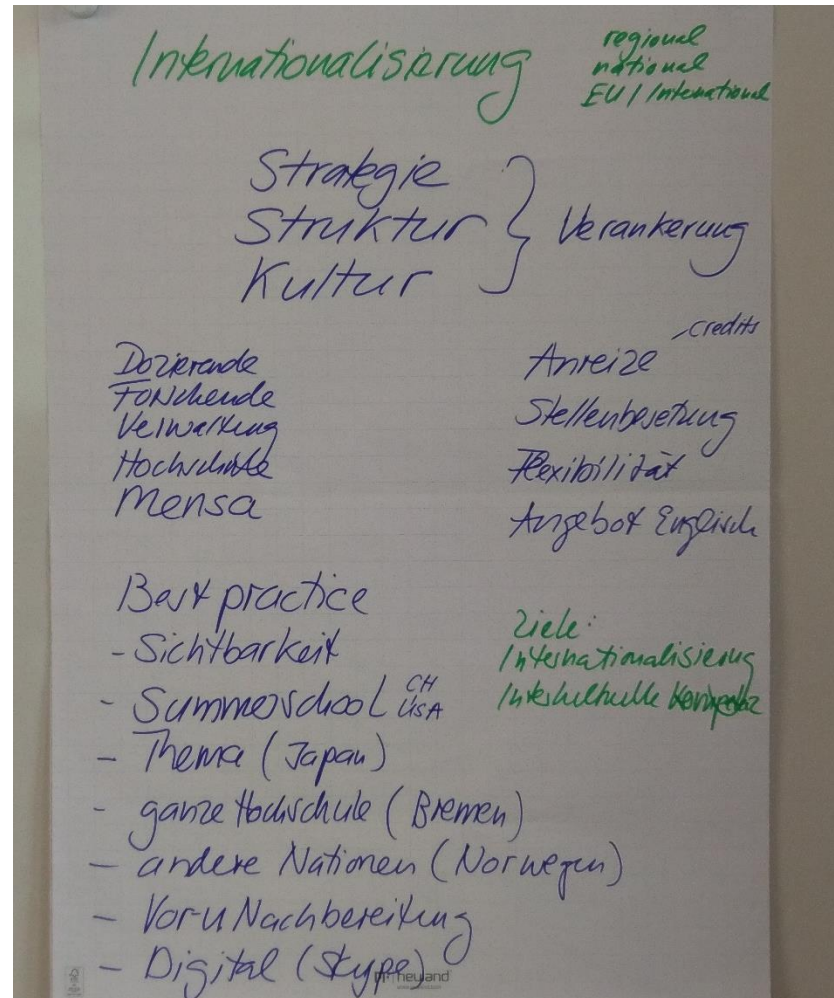 Internationalisierung
regional
national
EU / International
Strategie
Struktur } Verankerung
Kultur
Dozierende
Forschende
Verwaltung
Hochschule
Mensa
credits
Anreize
Stellenbesetzung
Flexibilität
Angebot Englisch
Best practice
- Sichtbarkeit
- Summerschool CH USA
- Thema (Japan)
- ganze Hochschule (Bremen)
- andere Nationen (Norwegen)
- Vor-u Nachbereitung
- Digital (Skype)
Ziele:
Internationalisierung
Interkulturelle Kompetenz
heyland